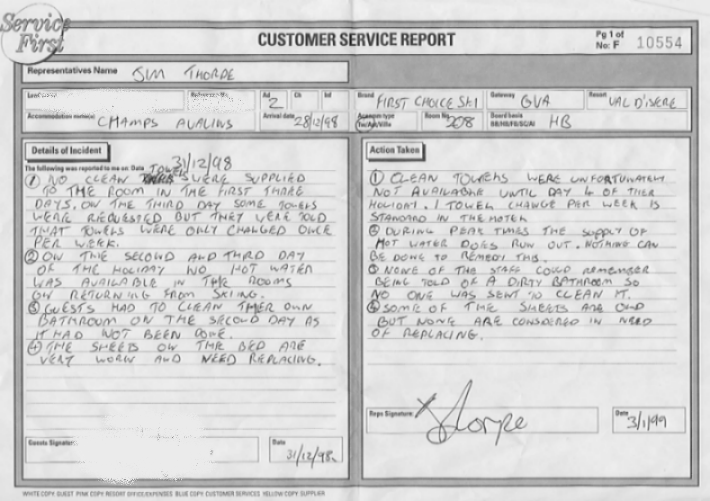 Service
First
CUSTOMER SERVICE REPORT
Pg 1 of
No: F 10554
Representatives Name JIM THORPE
Ad Ch Inf Brand Gateway Resort
2 FIRST CHOICE SKI GVA VAL D'ISERE
Accommodation name(s) Arrival date Room No. Board basis
CHAMPS AVALINS 28/12/98 208 HB
Details of Incident
The following was reported to me on: Date 31/12/98
① NO CLEAN TOWELS WERE SUPPLIED
TO THE ROOM IN THE FIRST THREE
DAYS. ON THE THIRD DAY SOME TOWELS
WERE REQUESTED BUT THEY WERE TOLD
THAT TOWELS WERE ONLY CHANGED ONCE
PER WEEK.
② ON THE SECOND AND THIRD DAY
OF THE HOLIDAY NO HOT WATER
WAS AVAILABLE IN THE ROOMS
ON RETURNING FROM SKIING.
③ GUESTS HAD TO CLEAN THEIR OWN
BATHROOM ON THE SECOND DAY AS
IT HAD NOT BEEN DONE.
④ THE SHEETS ON THE BED ARE
VERY WORN AND NEED REPLACING.
Guests Signature
Date
31/12/98
Action Taken
① CLEAN TOWELS WERE UNFORTUNATELY
NOT AVAILABLE UNTIL DAY 4 OF THEIR
HOLIDAY. 1 TOWEL CHANGE PER WEEK IS
STANDARD IN THE HOTEL
② DURING PEAK TIMES THE SUPPLY OF
HOT WATER DOES RUN OUT. NOTHING CAN
BE DONE TO REMEDY THIS.
③ NONE OF THE STAFF COULD REMEMBER
BEING TOLD OF A DIRTY BATHROOM SO
NO ONE WAS SENT TO CLEAN IT.
④ SOME OF THE SHEETS ARE OLD
BUT NONE ARE CONSIDERED IN NEED
OF REPLACING.
Reps Signature X Thorpe
Date
3/1/99
WHITE COPY GUEST PINK COPY RESORT OFFICE/EXPENSES BLUE COPY CUSTOMER SERVICES YELLOW COPY SUPPLIER